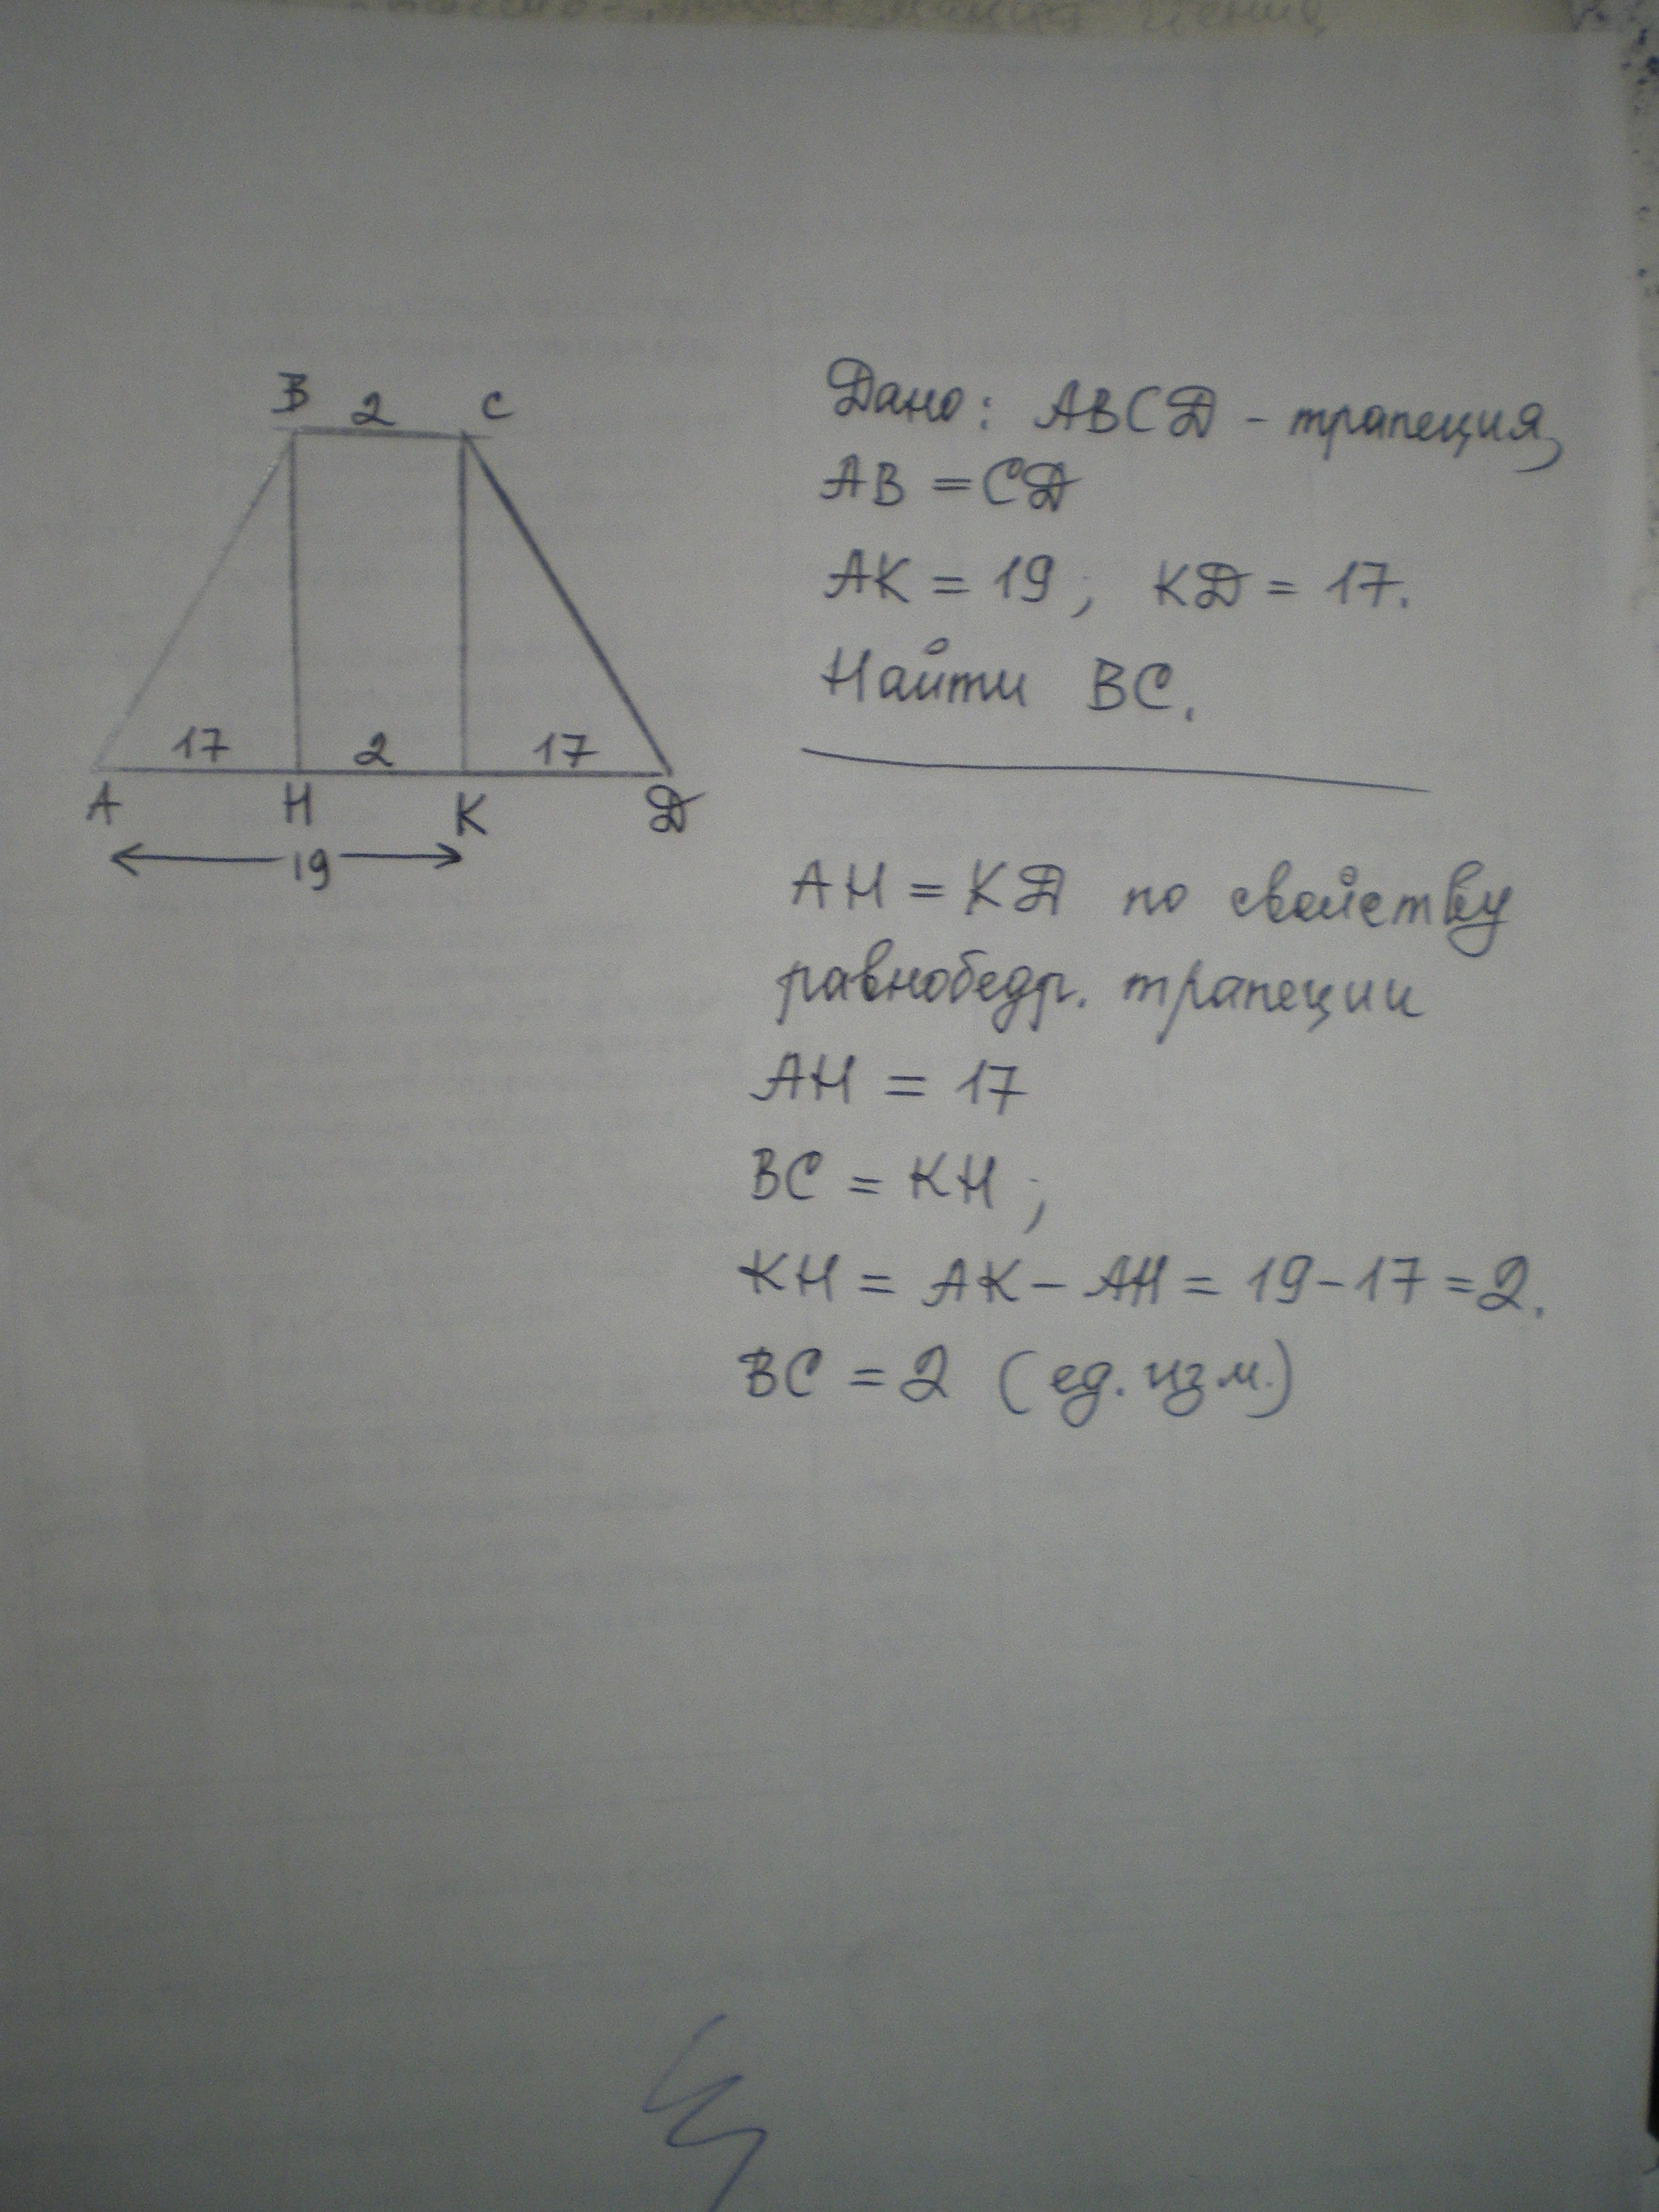 B 2 C
17 2 17
A H K D
19
Дано: ABCD - трапеция,
AB = CD
AK = 19; KD = 17.
Найти BC.
AH = KD по свойству
равнобедр. трапеции
AH = 17
BC = KH;
KH = AK - AH = 19 - 17 = 2.
BC = 2 (ед. изм.)